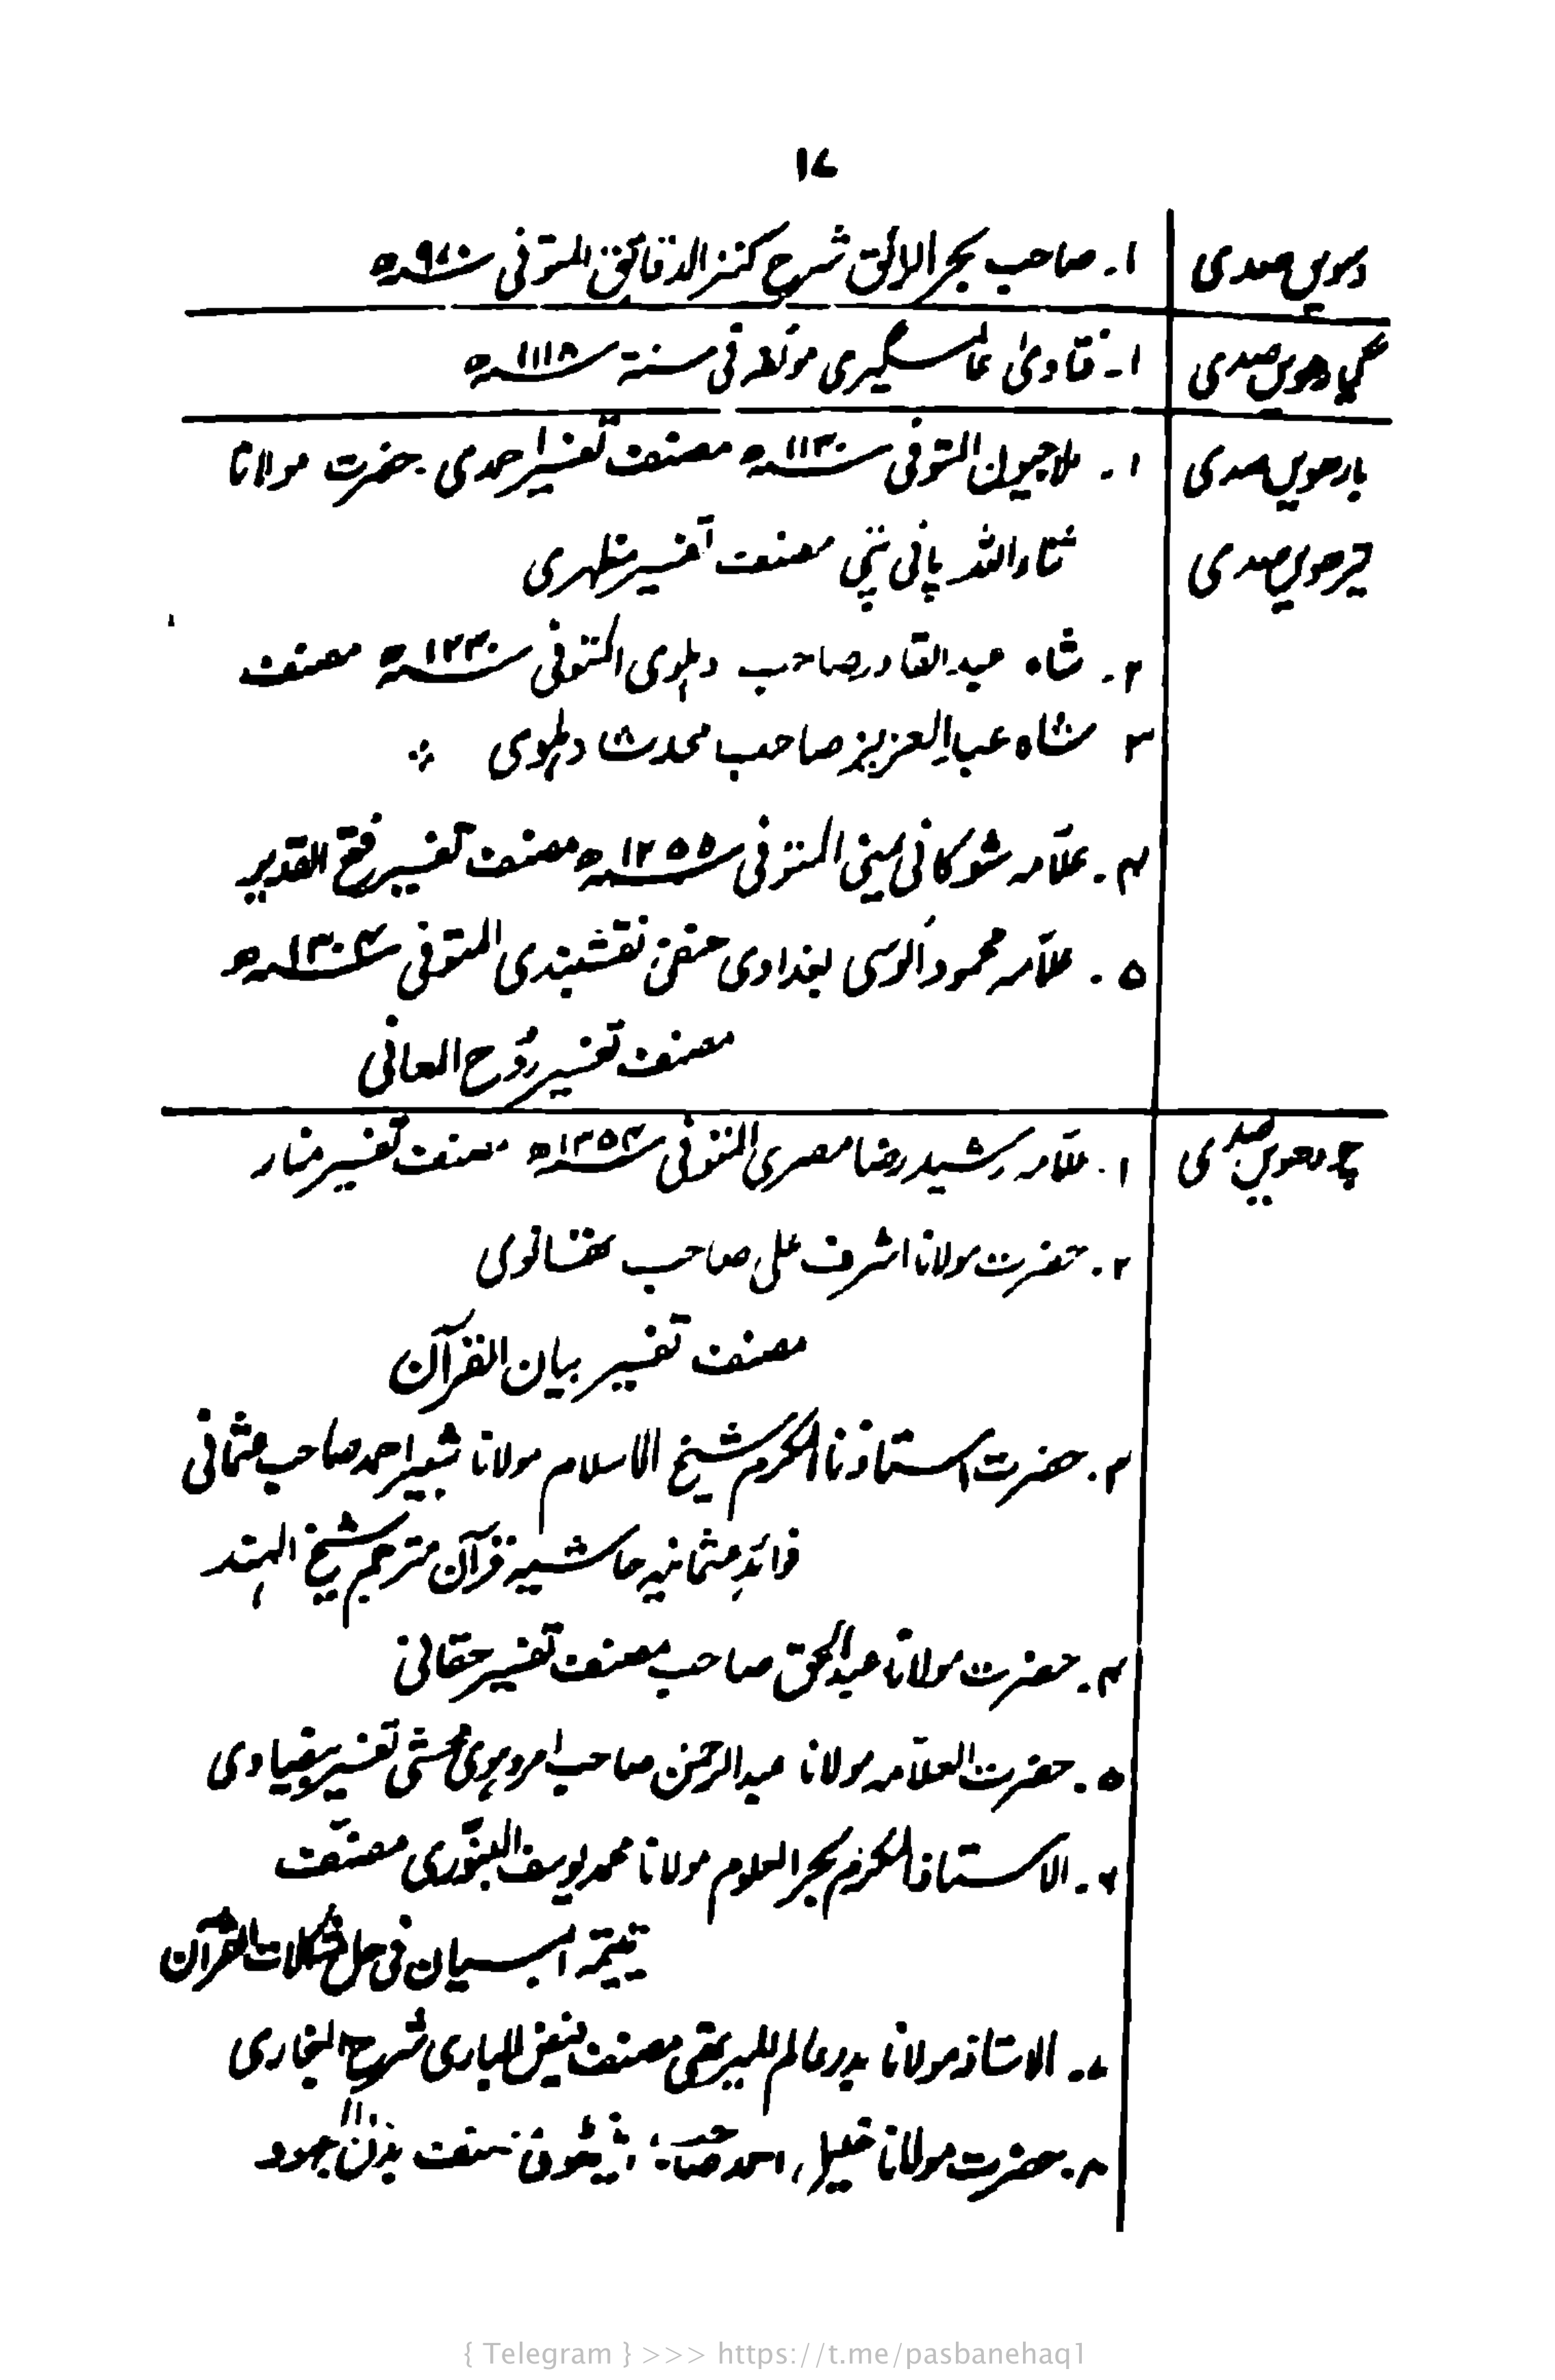 ۱۷
دسویں صدی ۱۔ صاحب بحر الرائق شرح کنز الدقائق المتوفی سنہ ۹۷۰ھ
گیارھویں صدی ۱۔ فتاویٰ عالمگیری مؤلفہ فی سنۃ سنہ ۱۱۱۸ھ
بارھویں صدی ۱۔ ملا جیون المتوفی سنہ ۱۱۳۰ھ مصنف تفسیر احمدی۔ حضرت مولانا
تیرھویں صدی ثناء اللہ پانی پتی مصنف تفسیر مظہری
۲۔ شاہ عبدالقادر صاحب دہلوی المتوفی سنہ ۱۲۳۰ھ مصنف
۳ شاہ عبدالعزیز صاحب محدث دہلوی
۴۔ علّامہ شوکانی یمینی المتوفی سنہ ۱۲۵۵ھ مصنف تفسیر فتح القدیر
۵۔ علّامہ محمود آلوسی بغدادی حنفی نقشبندی المتوفی سنہ ۱۳۰۴ھ
مصنف تفسیر رُوح المعانی
چودھویں صدی ۱۔ علّامہ رشید رضا مصری المتوفی سنہ ۱۳۵۴ھ مصنف تفسیر منار
۲۔ حضرت مولانا اشرف علی صاحب تھانوی
مصنف تفسیر بیان القرآن
۳۔ حضرت استاذنا المکرم شیخ الاسلام مولانا شبیر احمد صاحب عثمانی
فوائدِ عثمانیہ حاشیہ قرآن مترجم شیخ الہند
۴۔ حضرت مولانا عبدالحق صاحب مصنف تفسیر حقانی
۵۔ حضرت العلّامہ مولانا عبدالرحمٰن صاحب امروہوی محشی تفسیر بیضاوی
۶۔ الاستاذ المکرم بحر العلوم مولانا محمد یوسف البنّوری مصنّف
یتیمۃ البیان فی حل مشکلات القرآن
۷۔ الاستاذ مولانا بدر عالم المیرٹھی مصنف فیض الباری شرح البخاری
۸۔ حضرت مولانا خلیل احمد صاحب مصنف بذل المجہود
{ Telegram } >>> https://t.me/pasbanehaq1